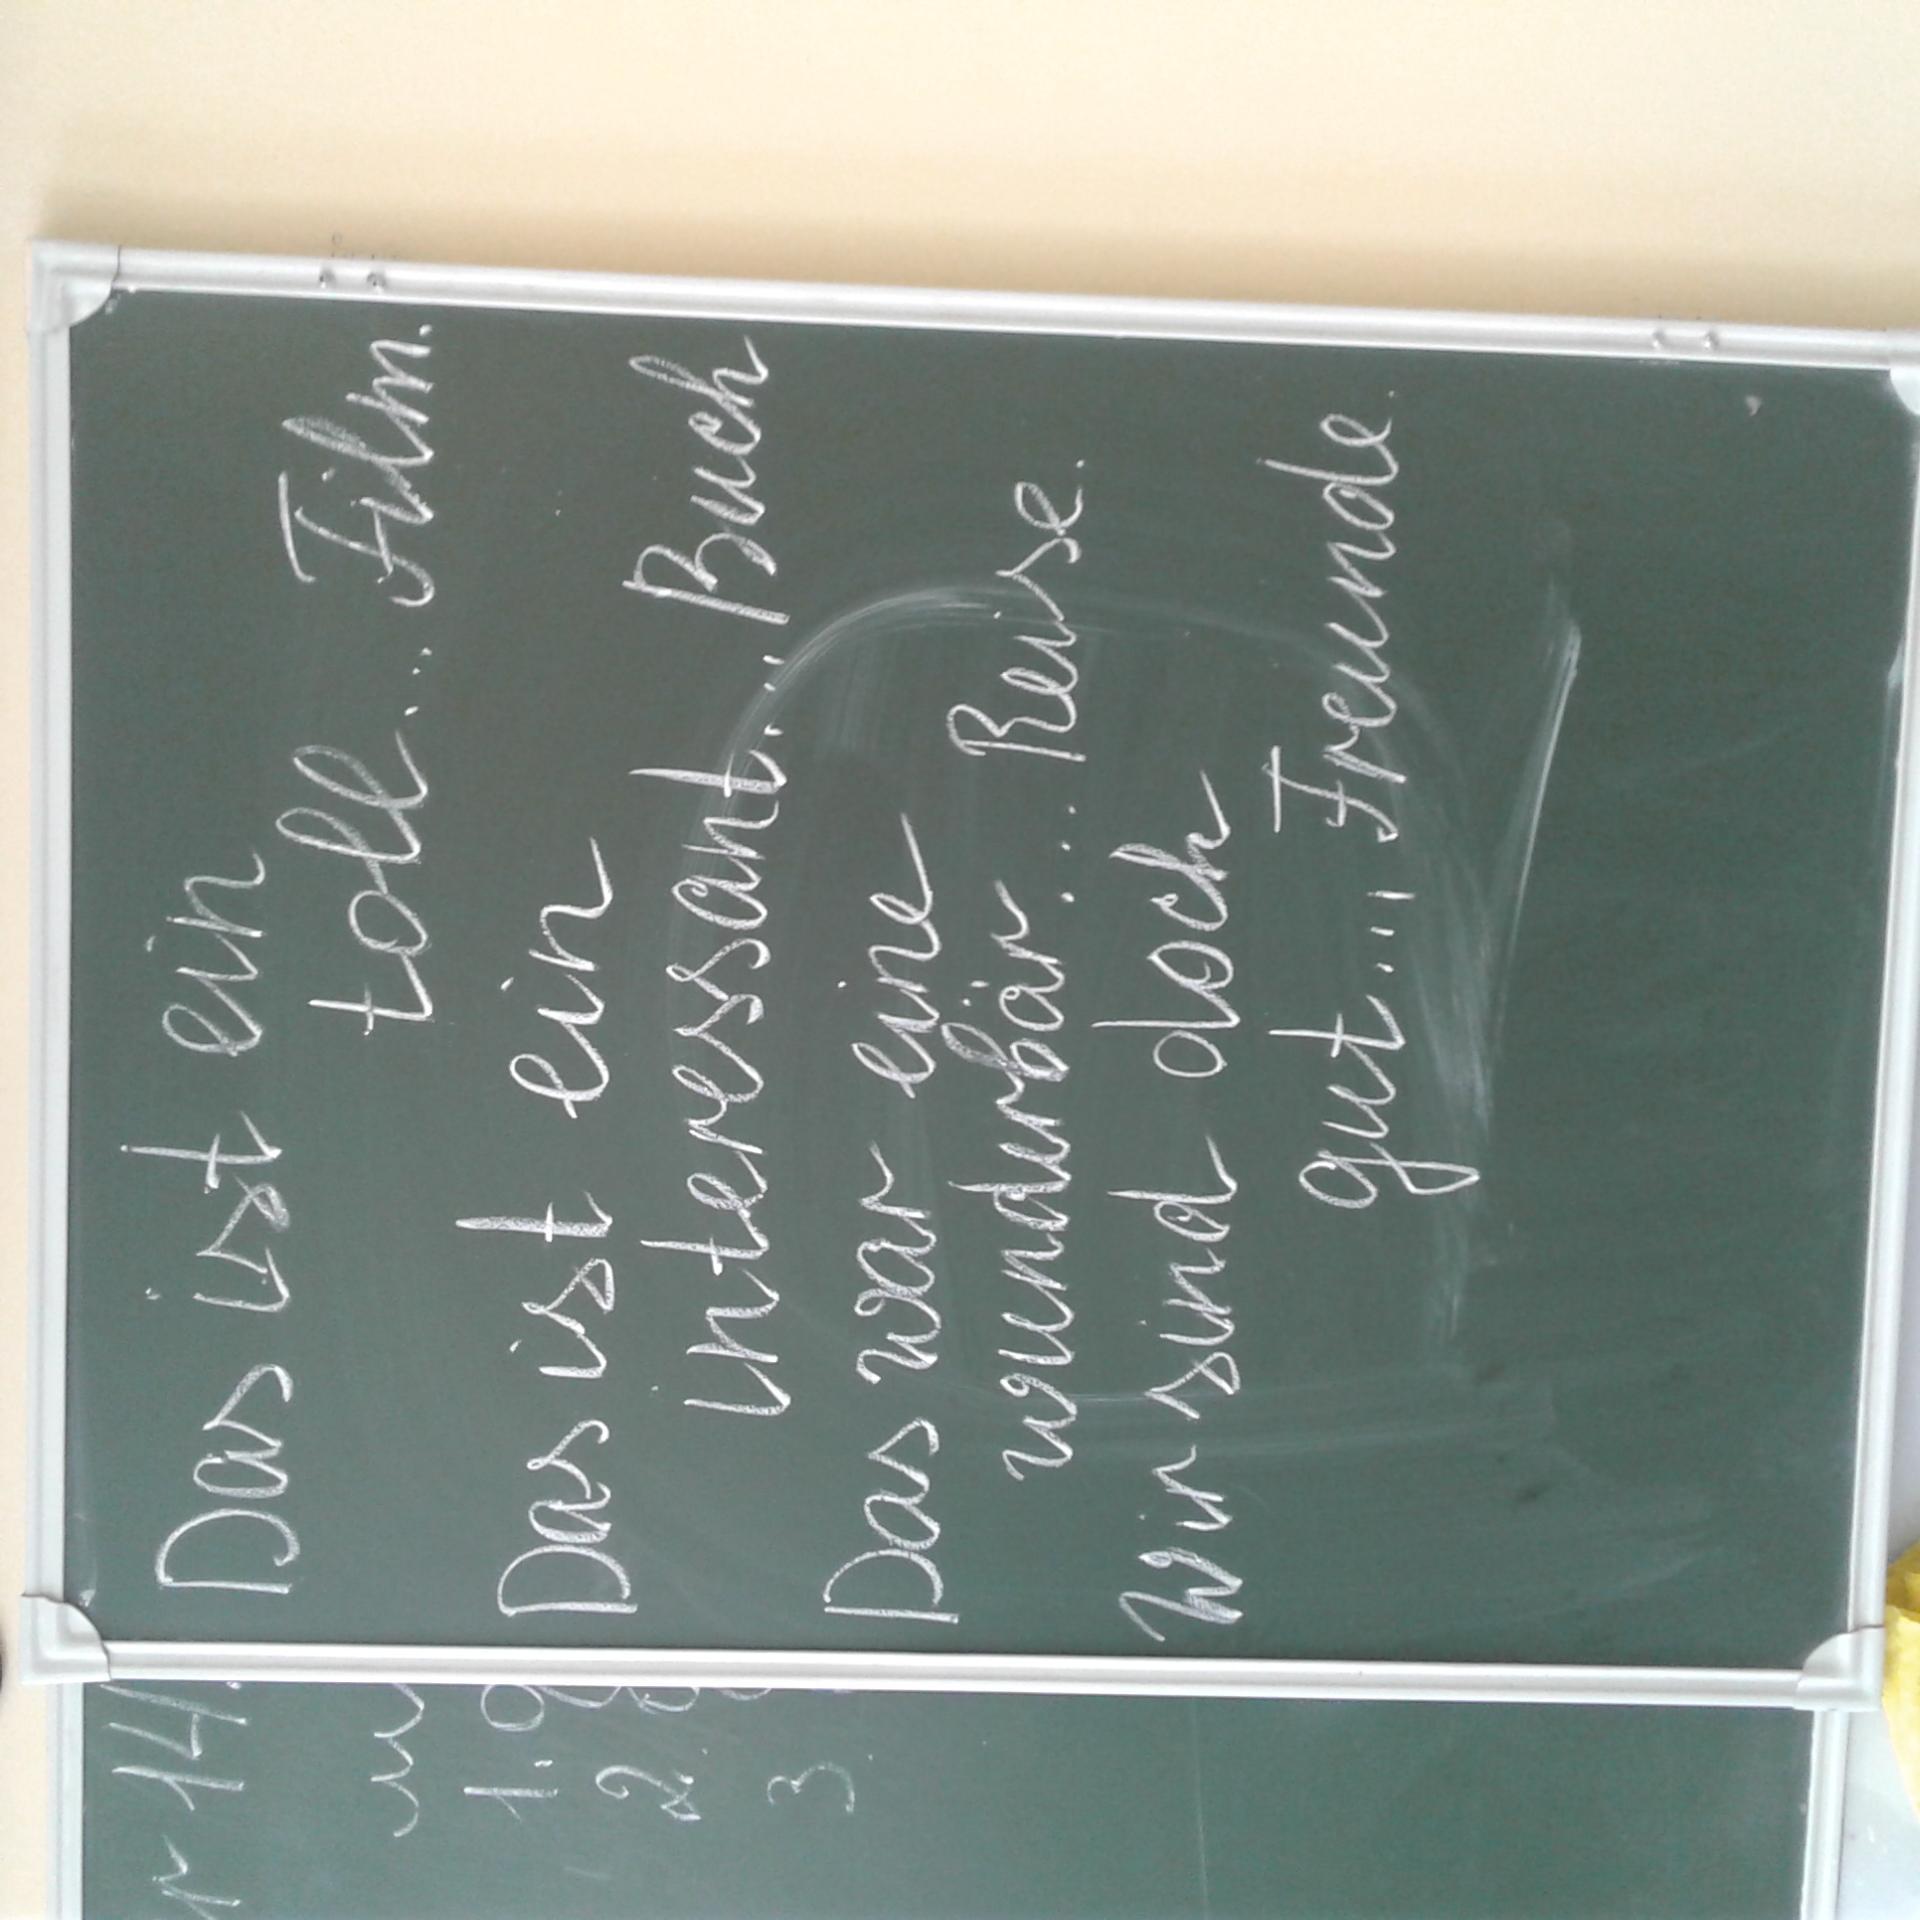 Das ist ein
toll... Film.
Das ist ein
interessant... Buch
Das war eine
wunderbär... Reise.
Wir sind doch
gut... Freunde.
14.
1.
2.
3.